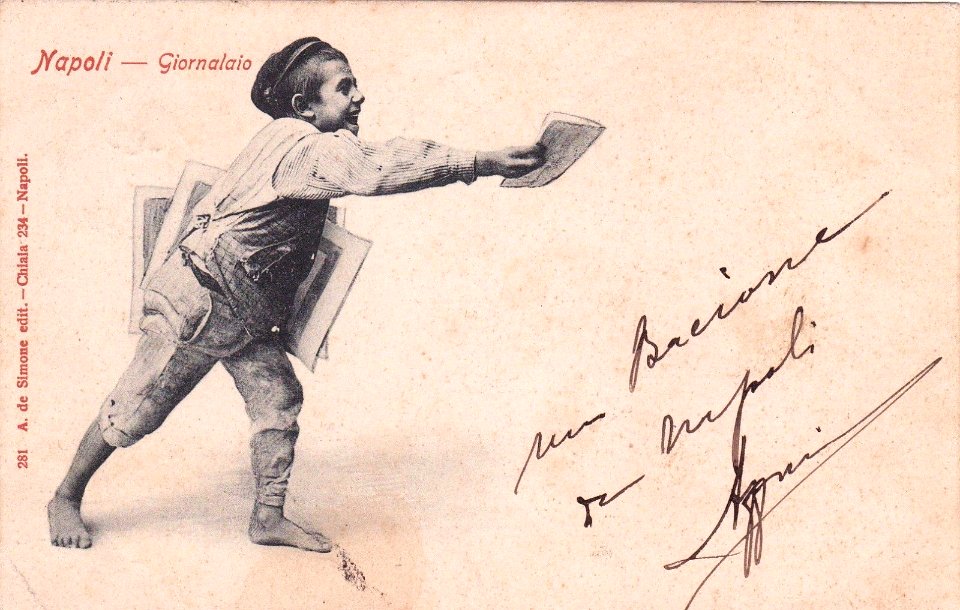 Napoli — Giornalaio
281 A. de Simone edit. — Chiaia 234 — Napoli.
un Bacione
da Napoli